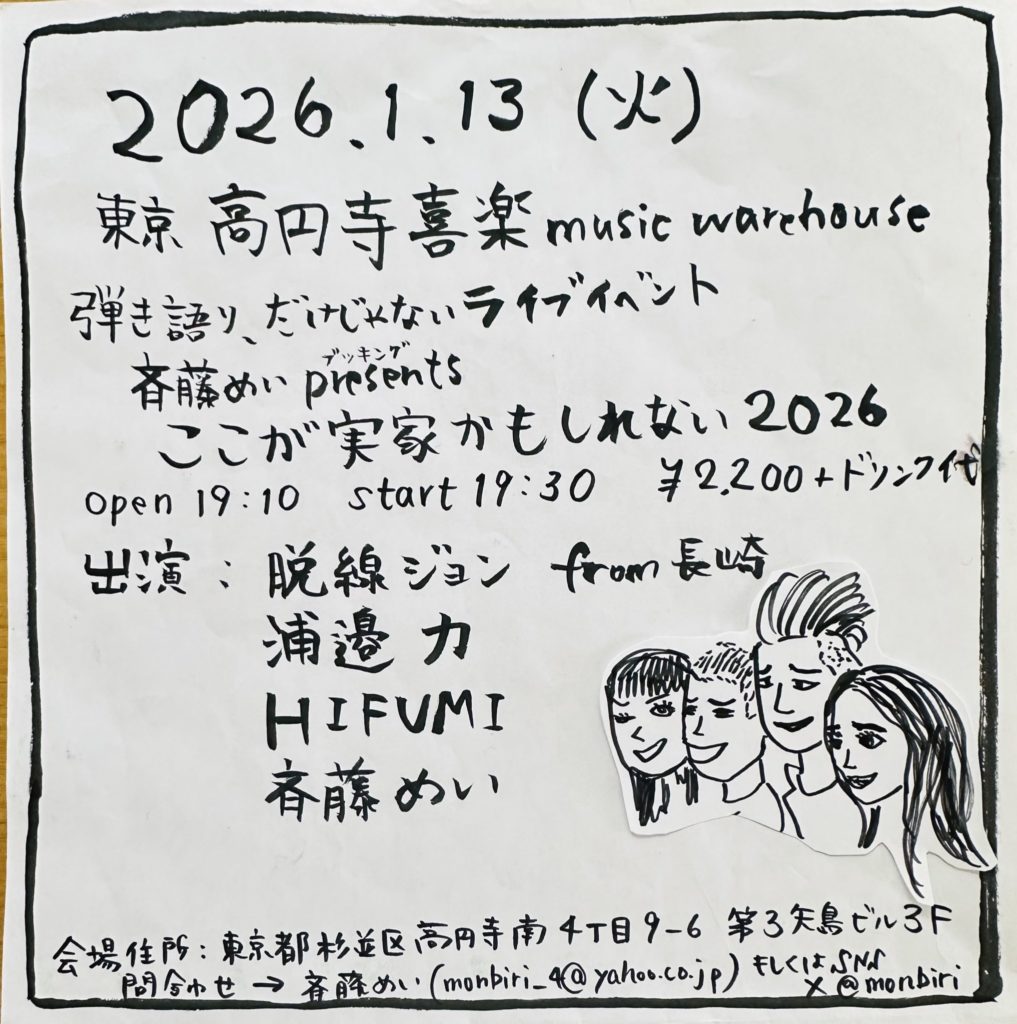 2026.1.13 (火)
東京 高円寺喜楽 music warehouse
弾き語り、だけじゃないライブイベント
ブッキング
斉藤めい presents
ここが実家かもしれない 2026
open 19:10 start 19:30 ¥2,200+ドリンク代
出演: 脱線ジョン from 長崎
浦邉 力
HIFUMI
斉藤めい
会場住所:東京都杉並区高円寺南4丁目9-6 第3矢島ビル3F
問合わせ→斉藤めい(monbiri_4@yahoo.co.jp) もしくはSNS
X @monbiri